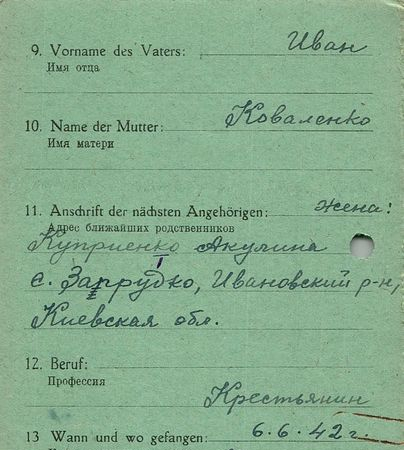 9. Vorname des Vaters: Иван
Имя отца
10. Name der Mutter: Коваленко
Имя матери
11. Anschrift der nächsten Angehörigen: жена:
Адрес ближайших родственников
Куприенко Акулина
с. Запрудко, Ивановский р-н,
Киевская обл.
12. Beruf:
Профессия
Крестьянин
13 Wann und wo gefangen: 6.6.42 г.